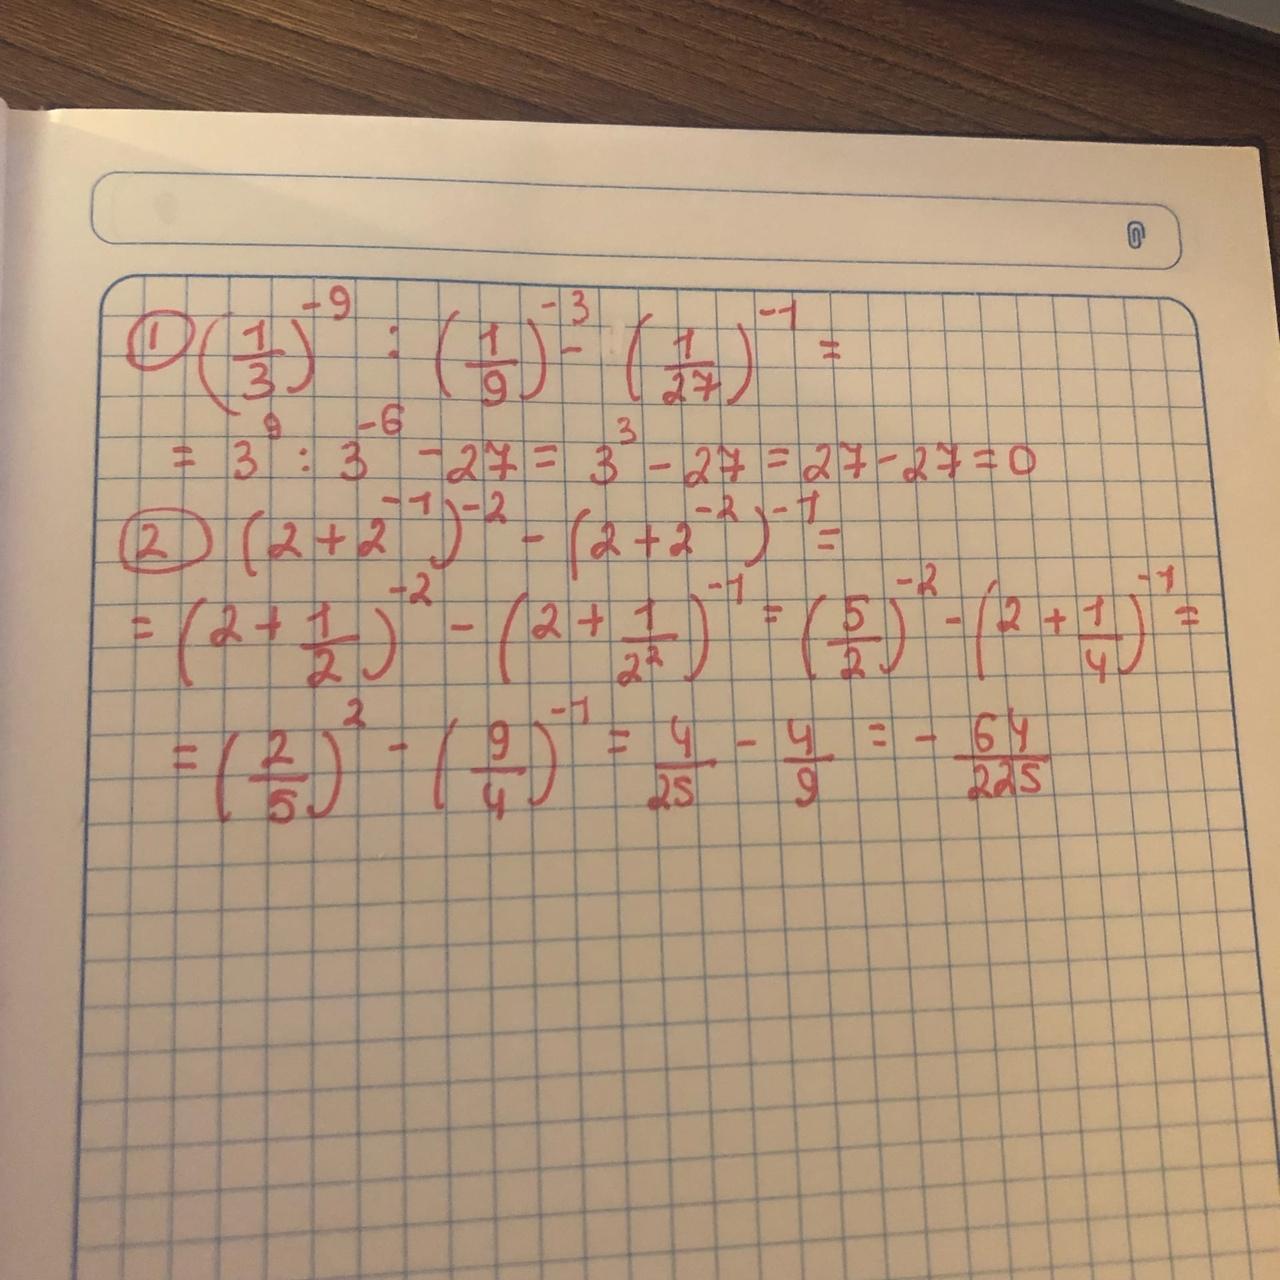 ① (1/3)^-9 : (1/9)^-3 - (1/27)^-1 =
= 3^9 : 3^-6 - 27 = 3^3 - 27 = 27 - 27 = 0
② (2 + 2^-1)^-2 - (2 + 2^-2)^-1 =
= (2 + 1/2)^-2 - (2 + 1/2^2)^-1 = (5/2)^-2 - (2 + 1/4)^-1 =
= (2/5)^2 - (9/4)^-1 = 4/25 - 4/9 = - 64/225